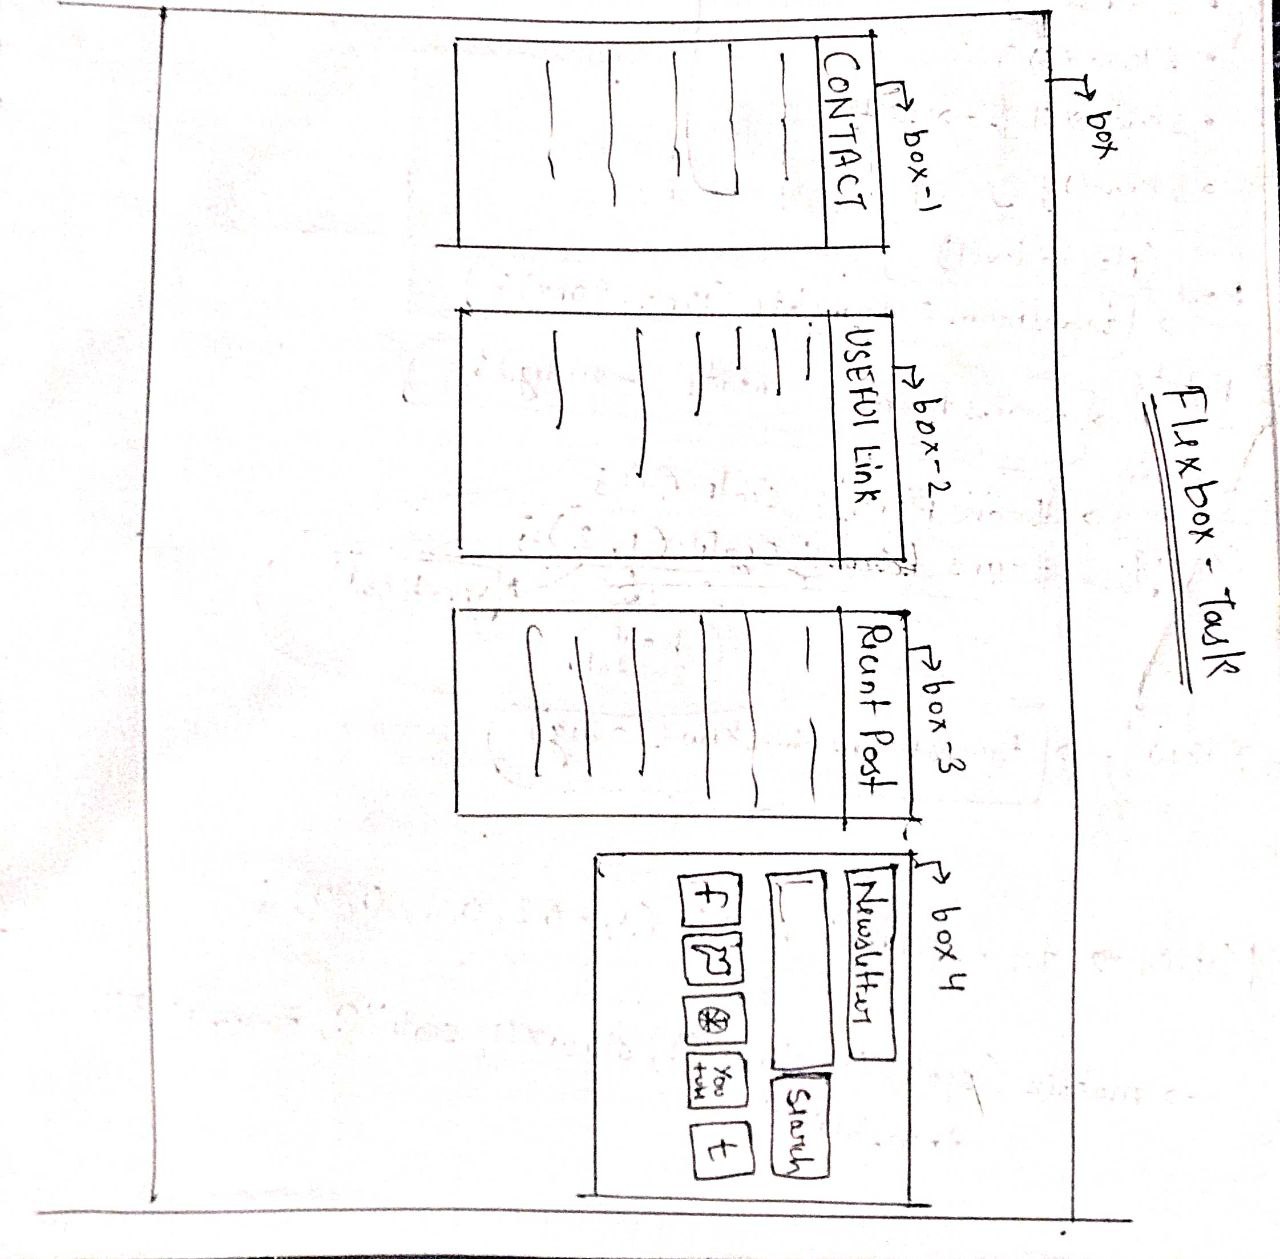 Flexbox - Task
box
box-1
CONTACT
box-2
USEFUl Link
box-3
Recent Post
box 4
Newsletter
Search
f
You
tube
t